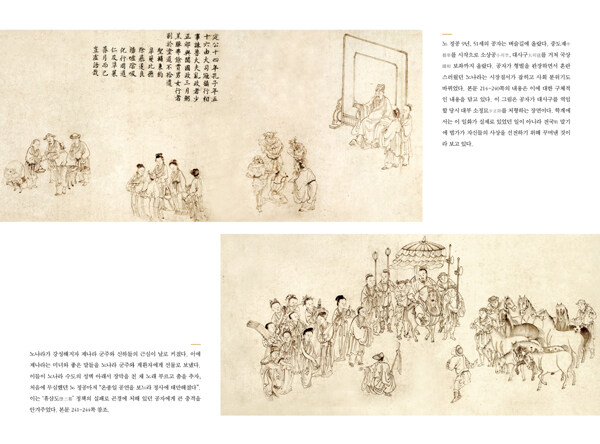 定公十四年孔子年五
十六由大司寇攝行相
事誅魯大夫亂政者少
正卯與聞國政三月粥
羔豚弗飾賈男女行者
別於塗道不拾遺
除慝是良
化行周道
노 정공 9년, 51세의 공자는 벼슬길에 올랐다. 중도재
를 시작으로 소상공, 대사구를 거쳐 국상
의 보좌까지 올랐다. 공자가 형벌을 관장하면서 혼란
스러웠던 노나라는 시장질서가 잡히고 사회 분위기도
바뀌었다. 본문 214~240쪽의 내용은 이에 대한 구체적
인 내용을 담고 있다. 이 그림은 공자가 대사구를 역임
할 당시 대부 소정묘를 처형하는 장면이다. 학계에
서는 이 일화가 실제로 있었던 일이 아니라 전국 말기
에 법가가 자신들의 사상을 선전하기 위해 꾸며낸 것이
라 보고 있다.
노나라가 강성해지자 제나라 군주와 신하들의 근심이 날로 커졌다. 이에
제나라는 미녀와 좋은 말들을 노나라 군주와 계환자에게 선물로 보냈다.
이들이 노나라 수도의 성벽 아래서 장막을 친 채 노래 부르고 춤을 추자,
처음에 무심했던 노 정공마저 “온종일 공연을 보느라 정사에 태만해졌다”.
이는 ‘휴삼도’ 정책의 실패로 곤경에 처해 있던 공자에게 큰 충격을
안겨주었다. 본문 241~244쪽 참조.